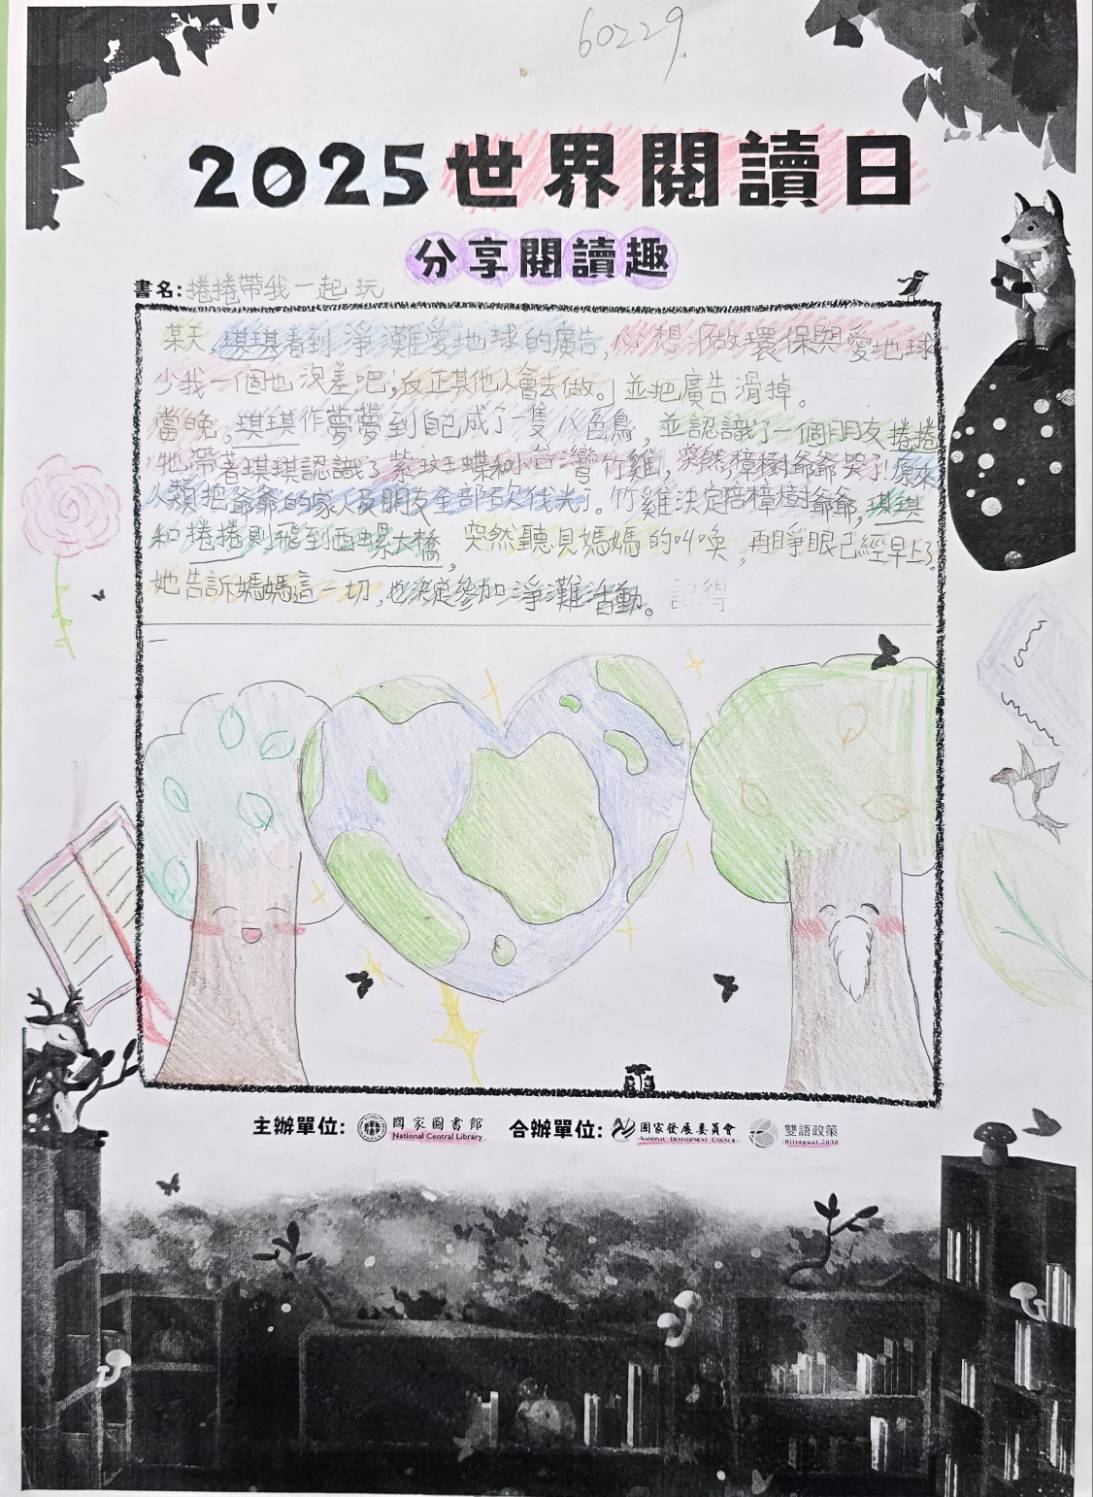 60229
2025世界閱讀日
分享閱讀趣
書名:捲捲帶我一起玩
某天,琪琪看到淨灘愛地球的廣告,心想「做環保與愛地球
少我一個也沒差吧,反正其他人會去做。」並把廣告滑掉。
當晚,琪琪作夢夢到自己成了一隻八色鳥,並認識了一個朋友捲捲
牠帶著琪琪認識了紫斑蝶和台灣竹雞,突然,樟樹爺爺哭了!原來
人類把爺爺的家人及朋友全部砍伐光了。竹雞決定陪樟樹爺爺,琪琪
和捲捲則飛到西螺大橋,突然聽見媽媽的叫喚,再睜眼已經早上了。
她告訴媽媽這一切,也決定參加淨灘活動。記得
主辦單位: 國家圖書館 National Central Library 合辦單位: 國家發展委員會 National Development Council 雙語政策 Bilingual 2030